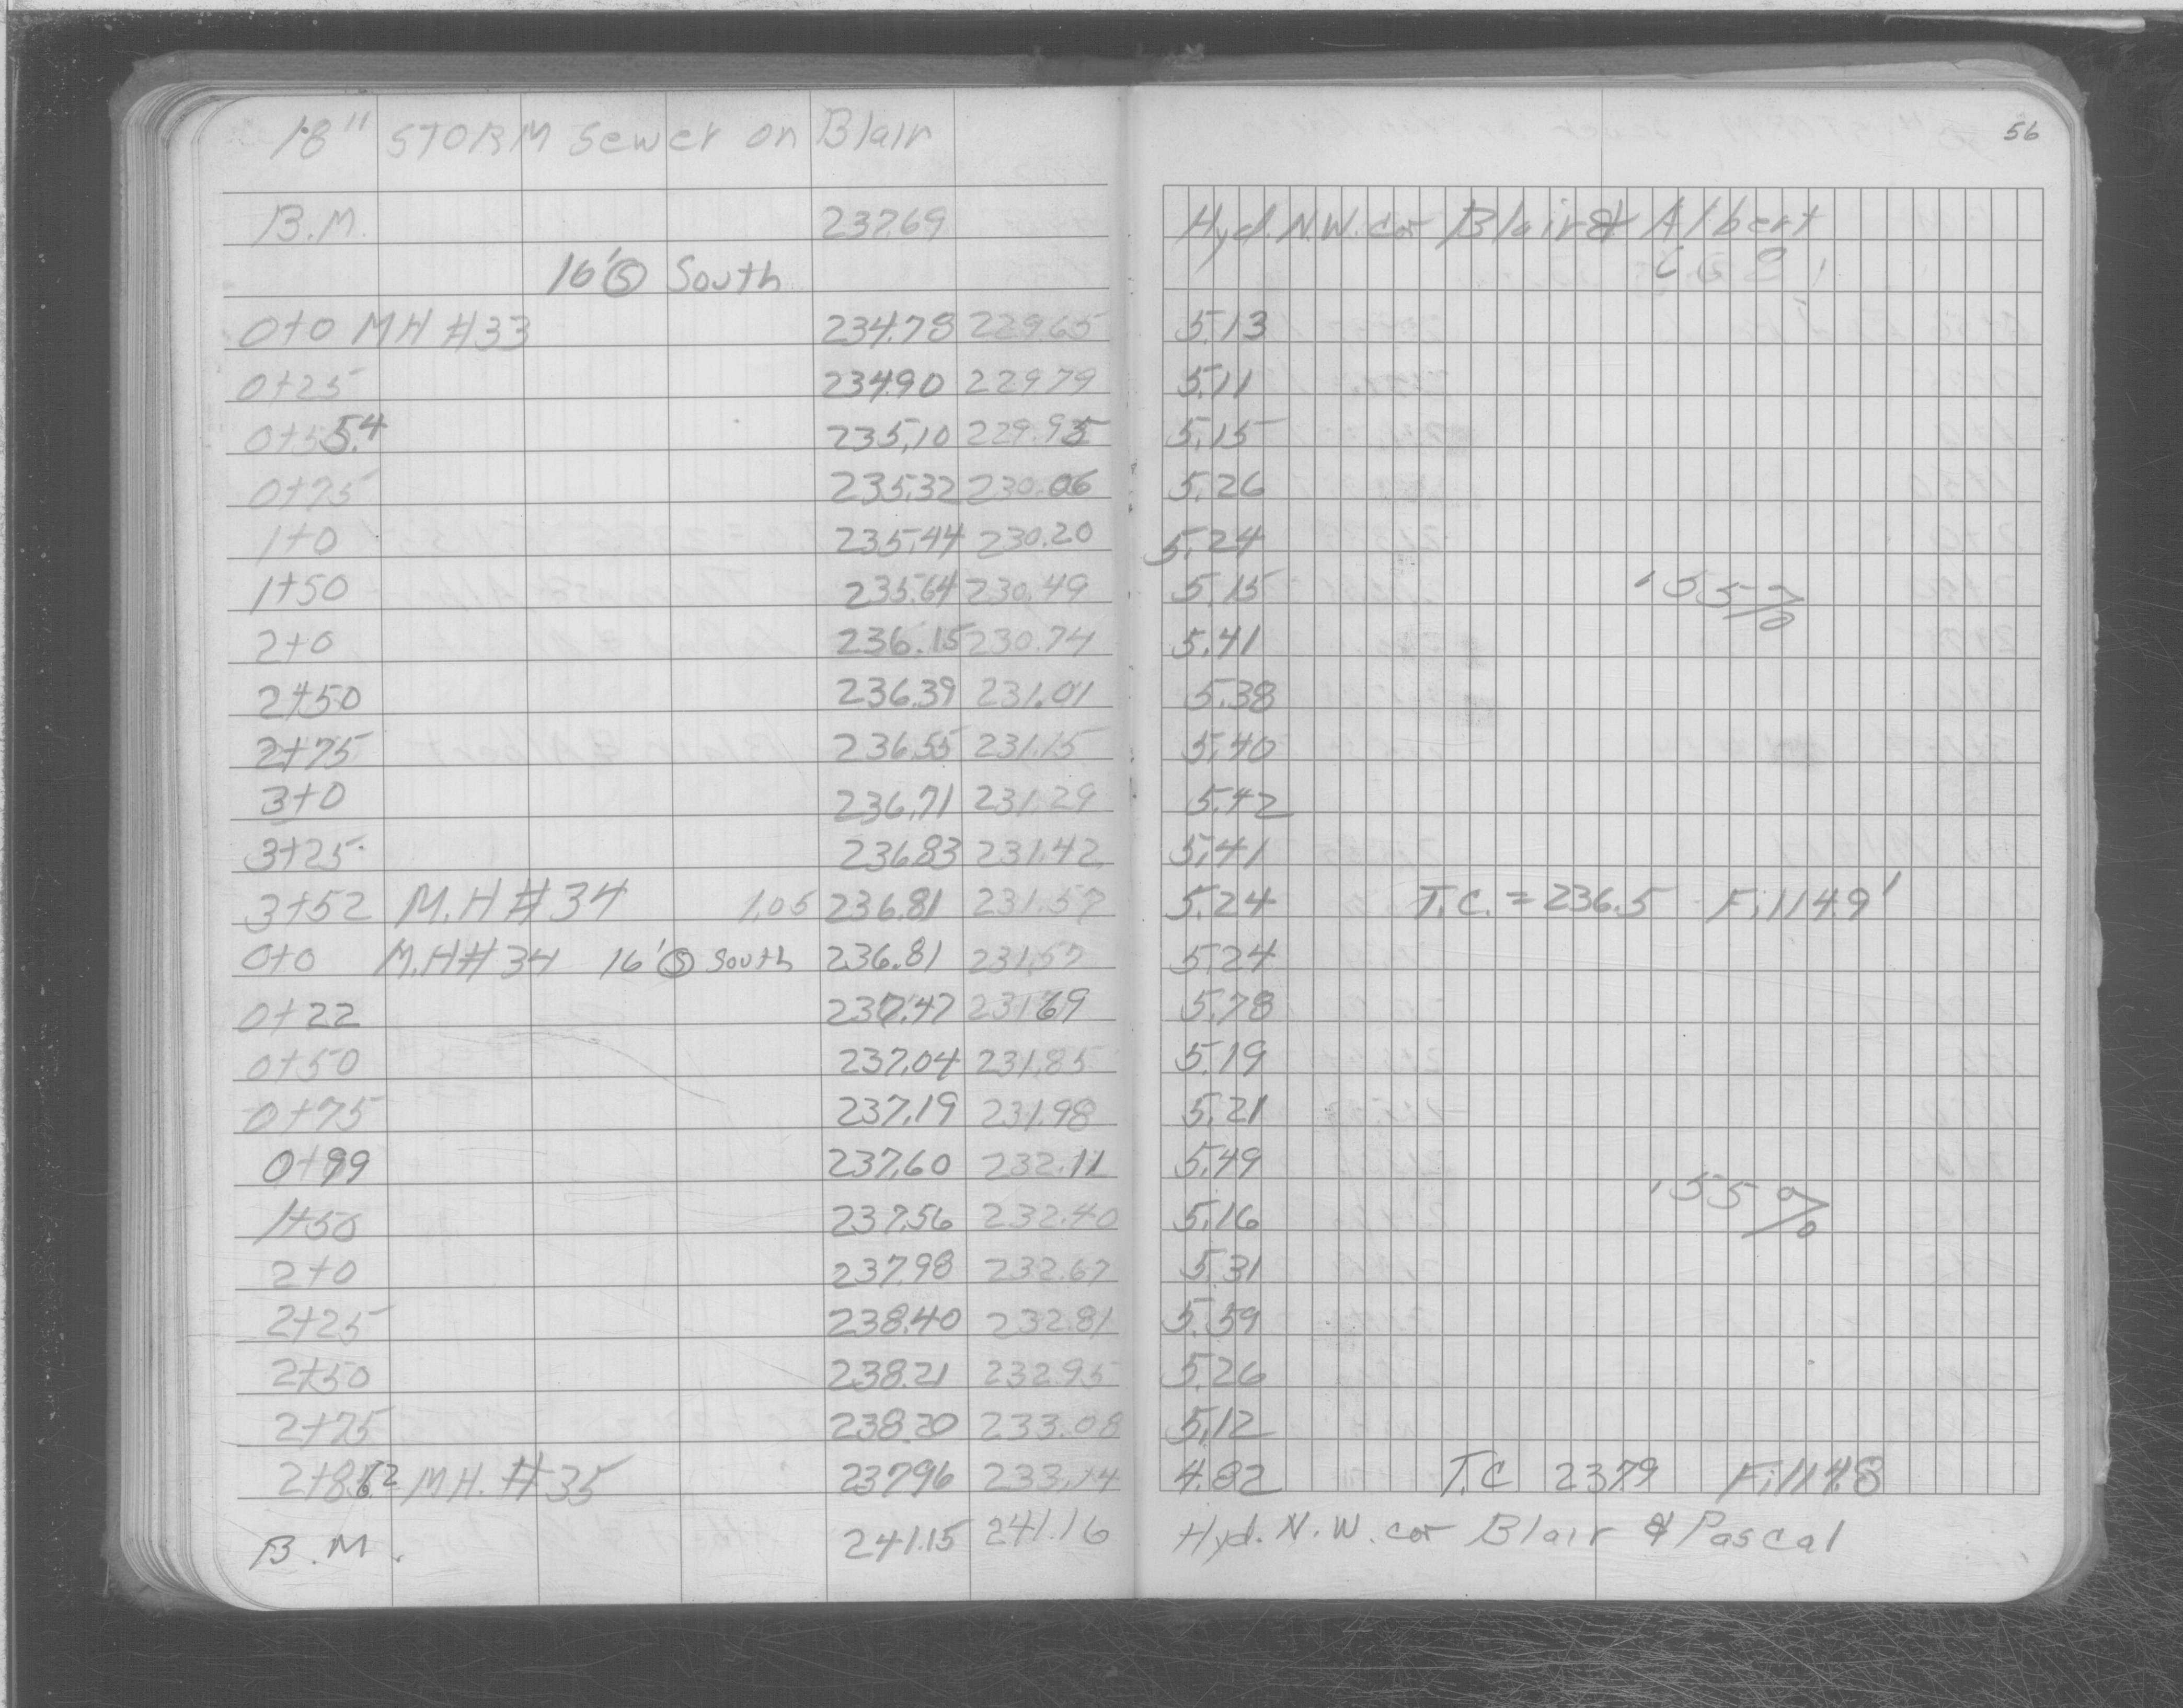 18" STORM Sewer on Blair
56
B.M. 237.69 Hyd. N.W. cor Blair & Albert
16' Ⓢ South
0+0 MH #33 234.78 229.65 5.13
0+25 234.90 229.79 5.11
0+55.4 235.10 229.95 5.15
0+75 235.32 230.06 5.26
1+0 235.44 230.20 5.24
1+50 235.64 230.49 5.15 .55%
2+0 236.15 230.74 5.41
2+50 236.39 231.01 5.38
2+75 236.55 231.15 5.40
3+0 236.71 231.29 5.42
3+25 236.83 231.42 5.41
3+52 M.H #34 1.05 236.81 231.57 5.24 T.C. = 236.5 Fill 4.9'
0+0 M.H #34 16' Ⓢ South 236.81 231.57 5.24
0+22 237.47 231.69 5.78
0+50 237.04 231.85 5.19
0+75 237.19 231.98 5.21
0+99 237.60 232.11 5.49
1+50 237.56 232.40 5.16 .55%
2+0 237.98 232.67 5.31
2+25 238.40 232.81 5.59
2+50 238.21 232.95 5.26
2+75 238.20 233.08 5.12
MH. #35 237.96 233.14 4.82 T.C 237.9 Fill 4.8
B.M. 241.15 241.16 Hyd. N.W. cor Blair & Pascal